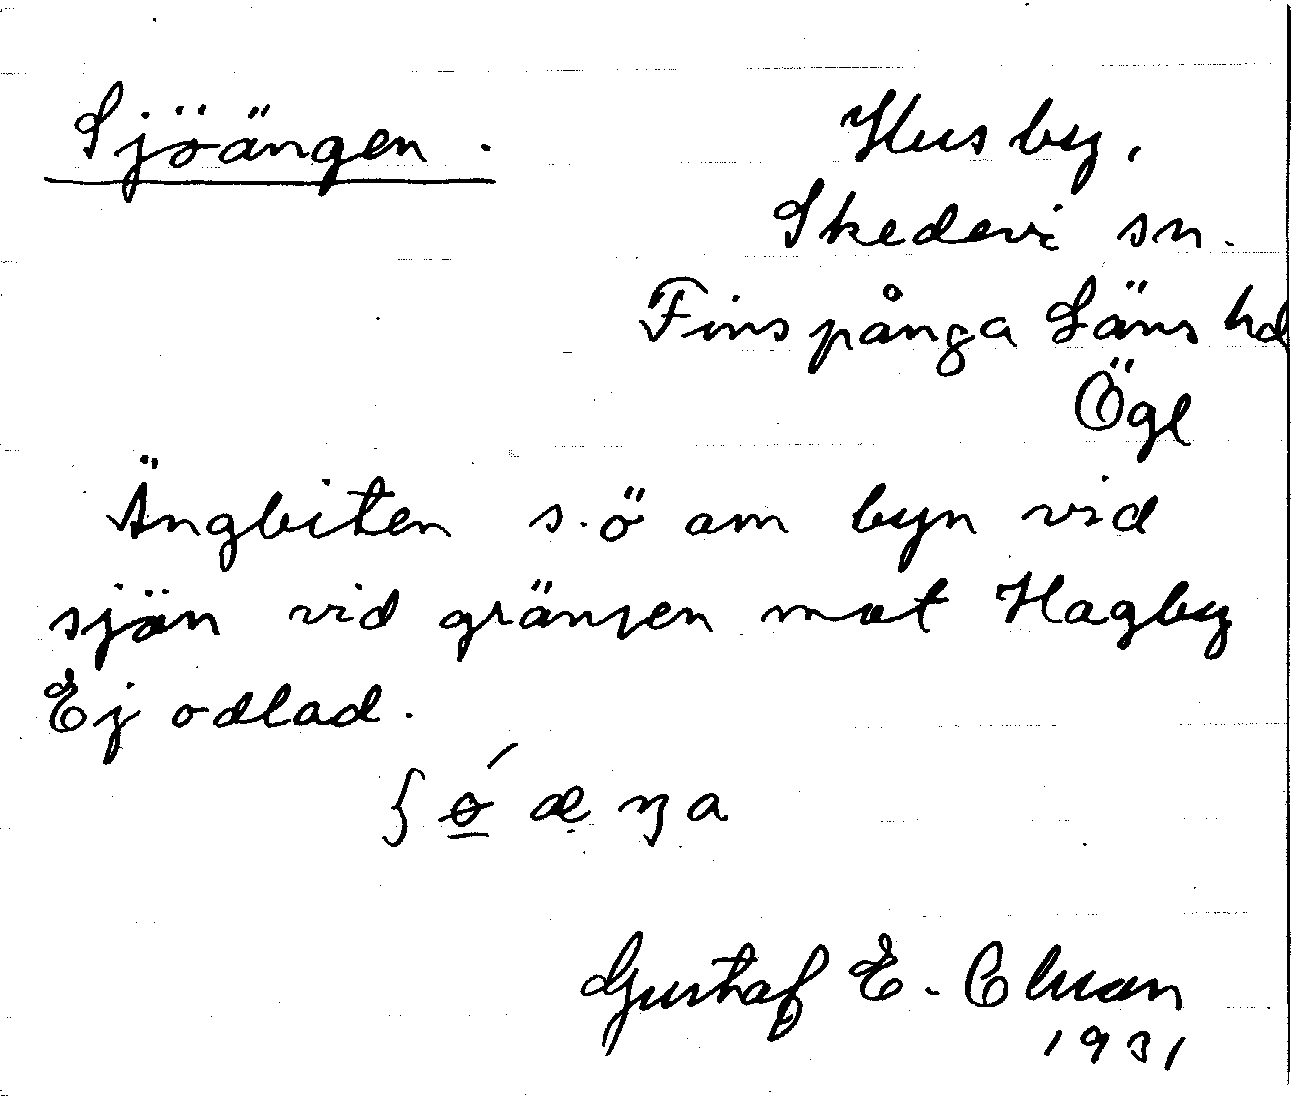 Sjöängen.
Husby,
Skedevi sn.
Finspånga Läns hd
Ögl
Ängbiten s.ö om byn vid
sjön vid gränsen mot Hagby
Ej odlad.
Gustaf E.
1931